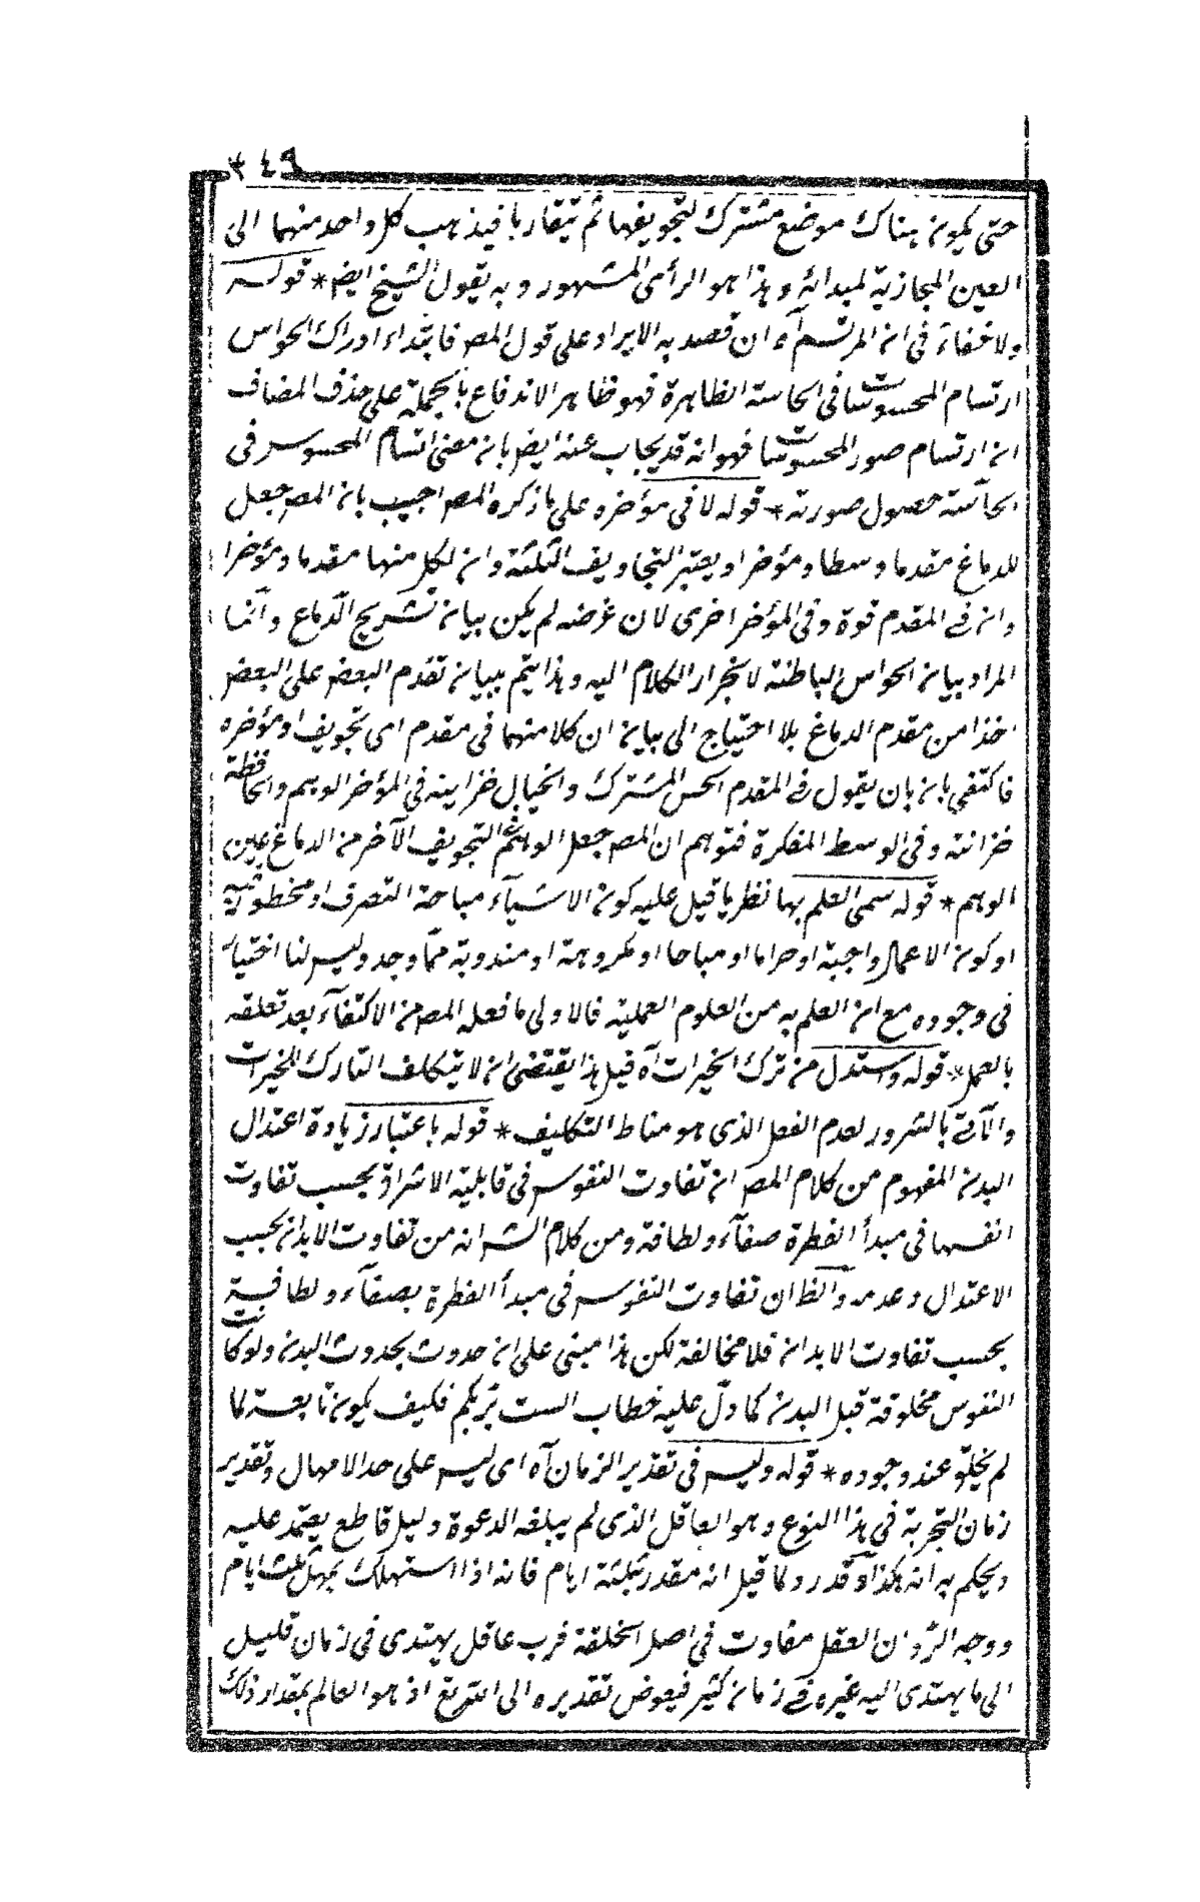 ٣٤٩
حتى يكون هناك موضع مشترك لتجويفها ثم يتقاربا فيذهب كل واحد منهما الى
العين المحاذية لمبدائه وهذا هو الرأى المشهور وبه يقول الشيخ ايض * قوله
ولا خفاء فى ان المرتسم آه ان قصد به الايراد على قول المصـ فابتداء ادراك الحواس
ارتسام المحسوسات فى الحاسة الظاهرة فهو ظاهر الاندفاع بالجملة على حذف المضاف
ان ارتسام صور المحسوسات فهو انه قد يجاب عنه ايض بان معنى ارتسام المحسوس فى
الحآسة حصول صورته * قوله لا فى مؤخره على ما ذكره المصـ اجيب بان المصـ جعل
للدماغ مقدما وسطا ومؤخرا ويعتبر التجاويف الثلثة وان لكل منها مقدما ومؤخرا
وان فى المقدم قوة وفى المؤخر اخرى لان غرضه لم يكن بيان تشريح الدماغ وانما
المراد بيان الحواس الباطنة لانجرار الكلام اليه وهذا يتم ببيان تقدم البعض على البعض
اخذا من مقدم الدماغ بلا احتياج الى بيان ان كلا منهما فى مقدم اى تجويف او مؤخره
فاكتفى بان بان يقول فى المقدم الحس المشترك والخيال خزاينه فى المؤخر الوهم والحافظة
خزانته وفى الوسط المفكرة فتوهم ان المصـ جعل الوهم التجويف الآخر من الدماغ عين
الوهم * قوله سمى العلم بها نظريا قيل عليه كون الاشيآء مباحة التصرف او محظوريته
او كون الاعمال واجبة او حراما او مباحا او مكروهة او مندوبة مما وجد وليس لنا اختيار
فى وجوده مع ان العلم به من العلوم العملية فالاولى ما فعله المصـ من الاكتفآء بعد تعلقه
بالعمل * قوله واستدل من ترك الخيرات آه قيل هذا يقتضى ان لا يتكلف التارك الخيرات
والآتى بالشرور لعدم الفعل الذى هو مناط التكليف * قوله باعتبار زيادة اعتدال
البدن المفهوم من كلام المصـ ان تفاوت النفوس فى قابلية الاشراق بحسب تفاوت
انفسها فى مبدأ الفطرة صفآء ولطافة ومن كلام الشـ انه من تفاوت الابدان بحسب
الاعتدال وعدمه والظ ان تفاوت النفوس فى مبدأ الفطرة بصفآء ولطافة
بحسب تفاوت الابدان فلا مخالفة لكن هذا مبنى على ان حدوث بحدوث البدن ولو كانت
النفوس مخلوقة قبل البدن كما دل عليه خطاب الست بربكم فكيف يكون تابعة لما
لم يخلق عند وجوده * قوله وليس فى تقدير الزمان آه اى ليس على حد الامهال وتقدير
زمان التجربة فى هذا النوع وهو العاقل الذى لم يبلغه الدعوة دليل قاطع يعتمد عليه
ويحكم به انه هكذا قدر ولما قيل انه مقدر بثلثة ايام فانه اذا استهلك يمهل ثلث ايام
ووجه الرد ان العقل متفاوت فى اصل الخلقة فرب عاقل يهتدى فى زمان قليل
الى ما يهتدى اليه غيره فى زمان كثير فيعوض تقديره الى الله تع اذ هو العالم بمقدار ذلك